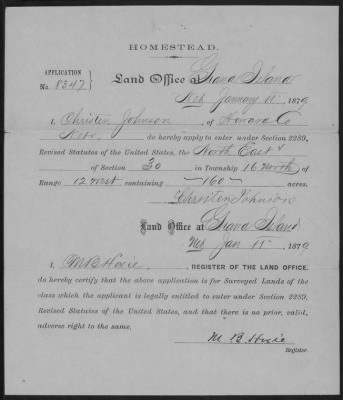 HOMESTEAD.
APPLICATION
No. 8347
Land Office at Grand Island
Neb January 11 1879
I, Christen Johnson, of Howard Co
Nebr, do hereby apply to enter under Section 2289,
Revised Statutes of the United States, the North East 4
of Section 30 in Township 16 North of
Range 12 West containing 160 acres.
Christen Johnson
Land Office at Grand Island
Neb Jan 11 1879
I, M. B. Hoxie, REGISTER OF THE LAND OFFICE,
do hereby certify that the above application is for Surveyed Lands of the
class which the applicant is legally entitled to enter under Section 2289,
Revised Statutes of the United States, and that there is no prior, valid,
adverse right to the same.
M. B. Hoxie
Register.